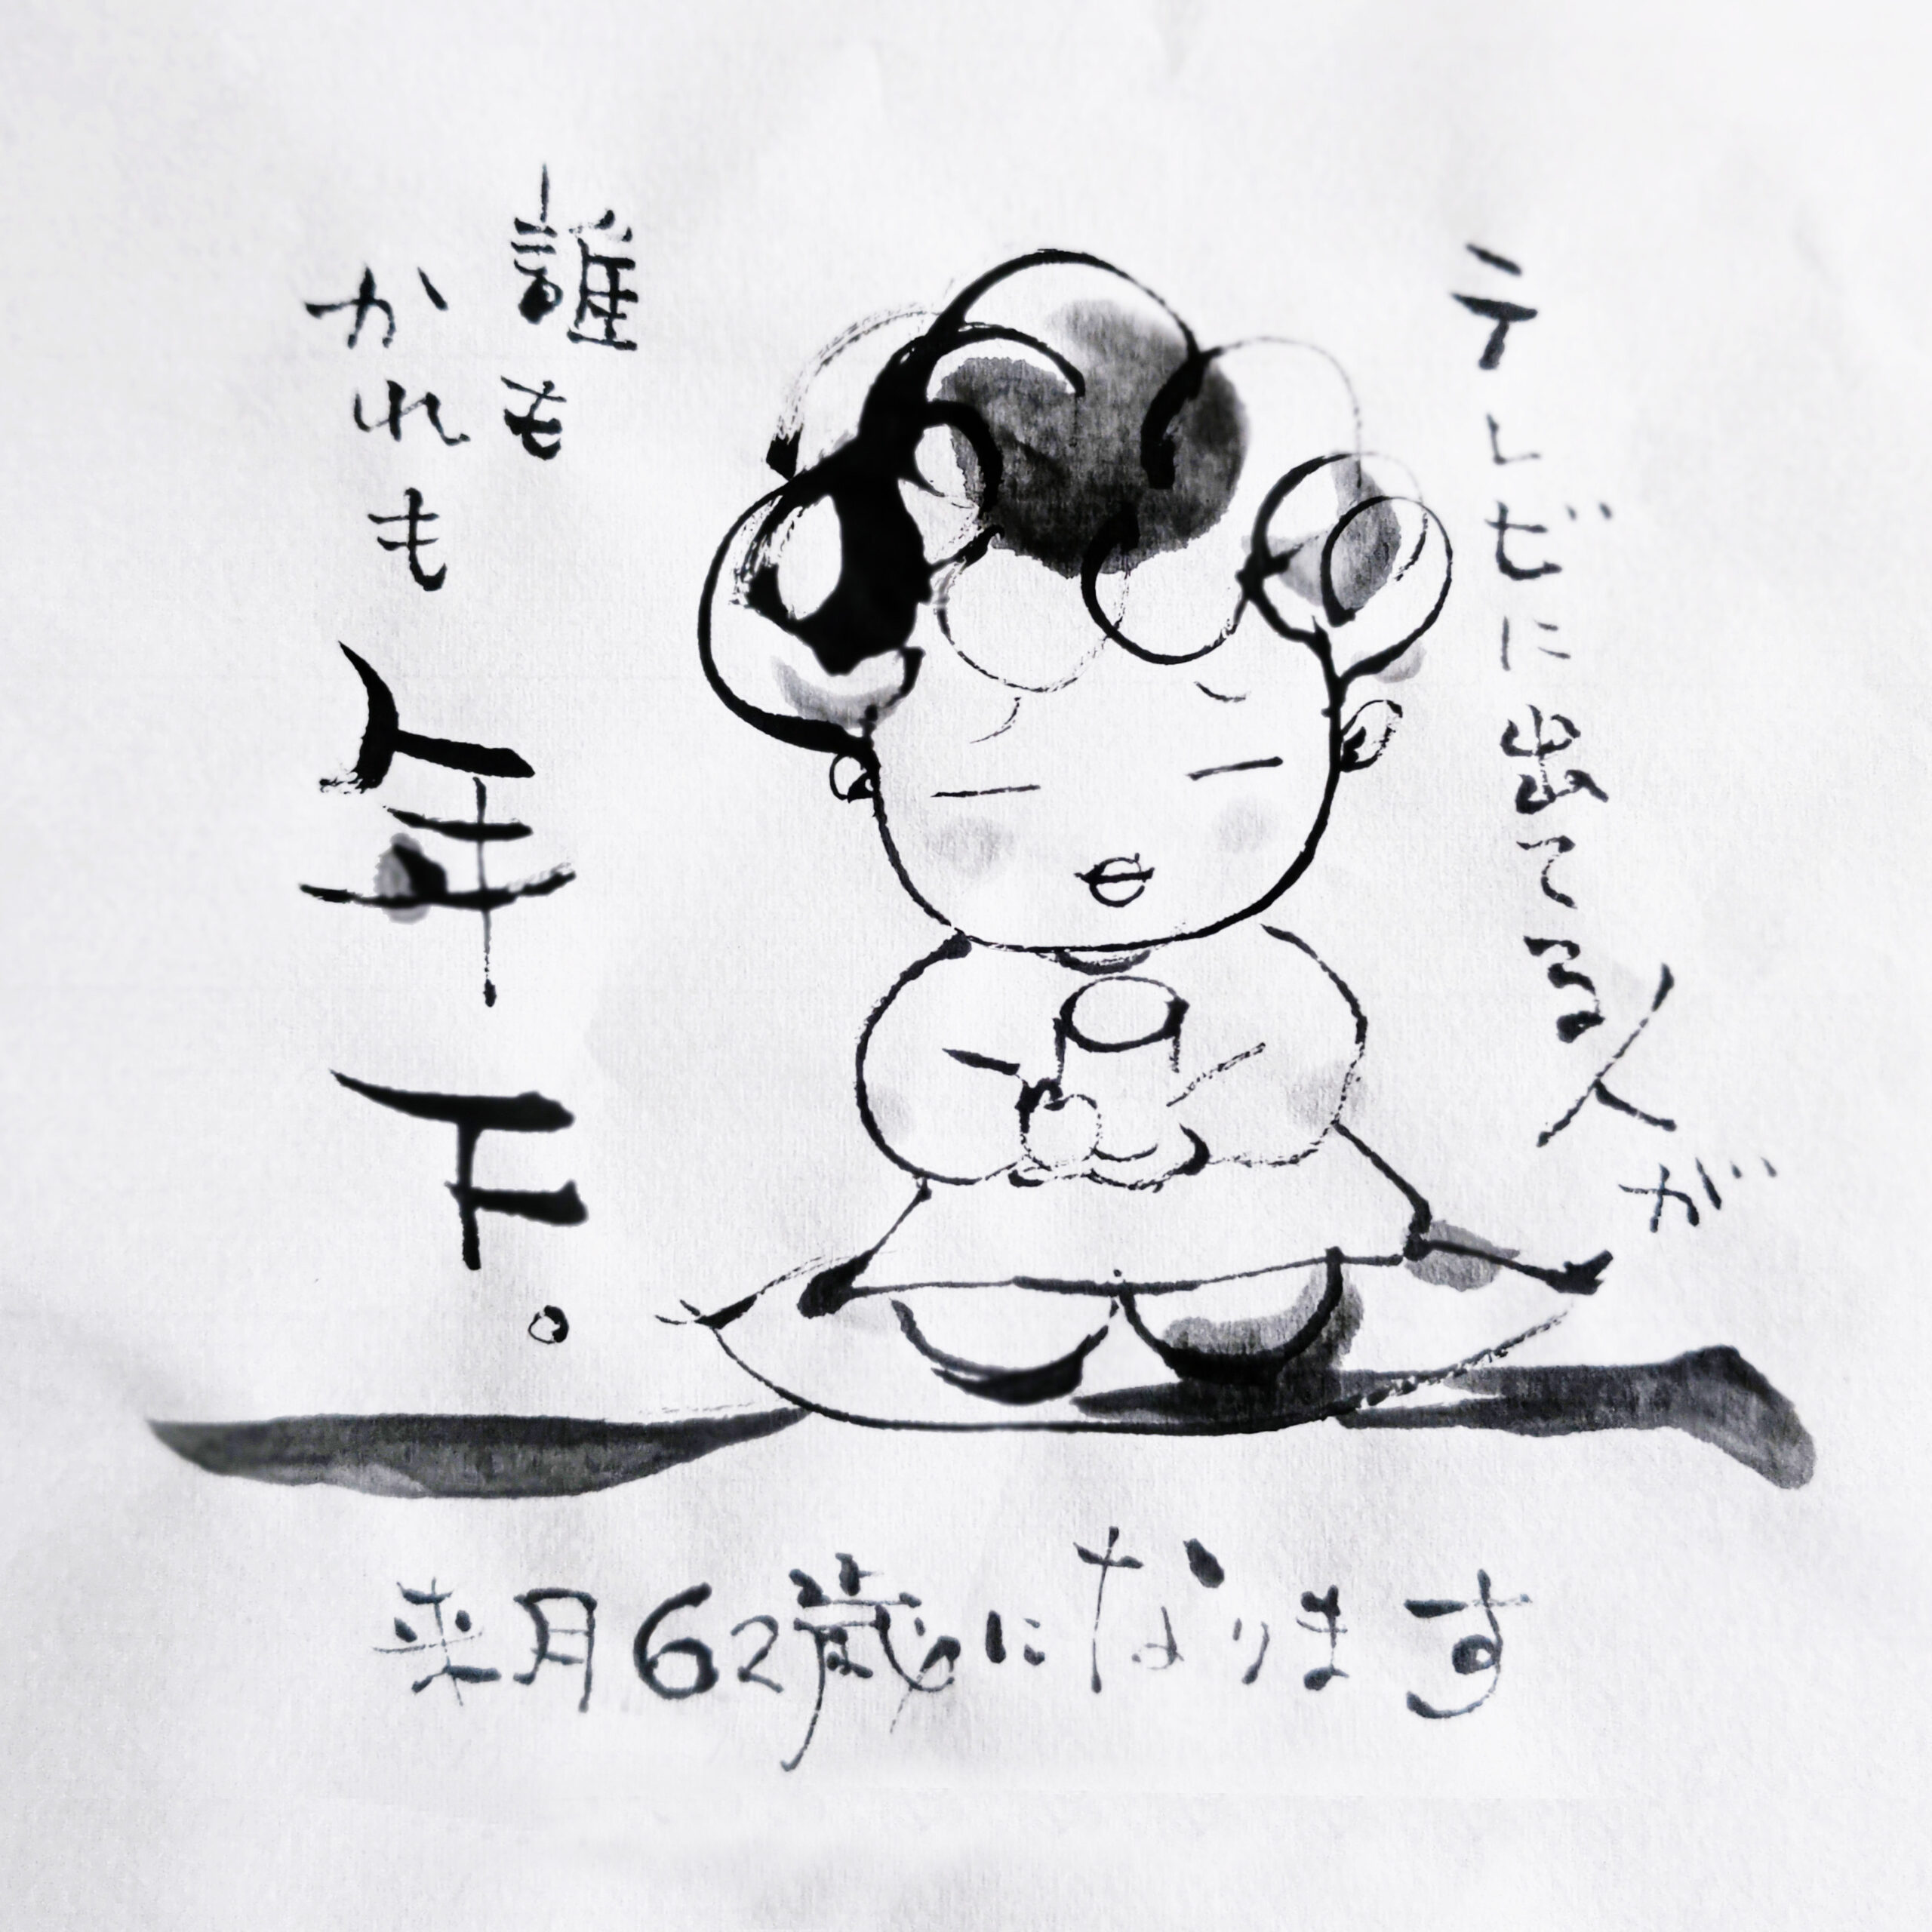 テレビに出てる人が
誰も
かれも
年下。
来月62歳になります